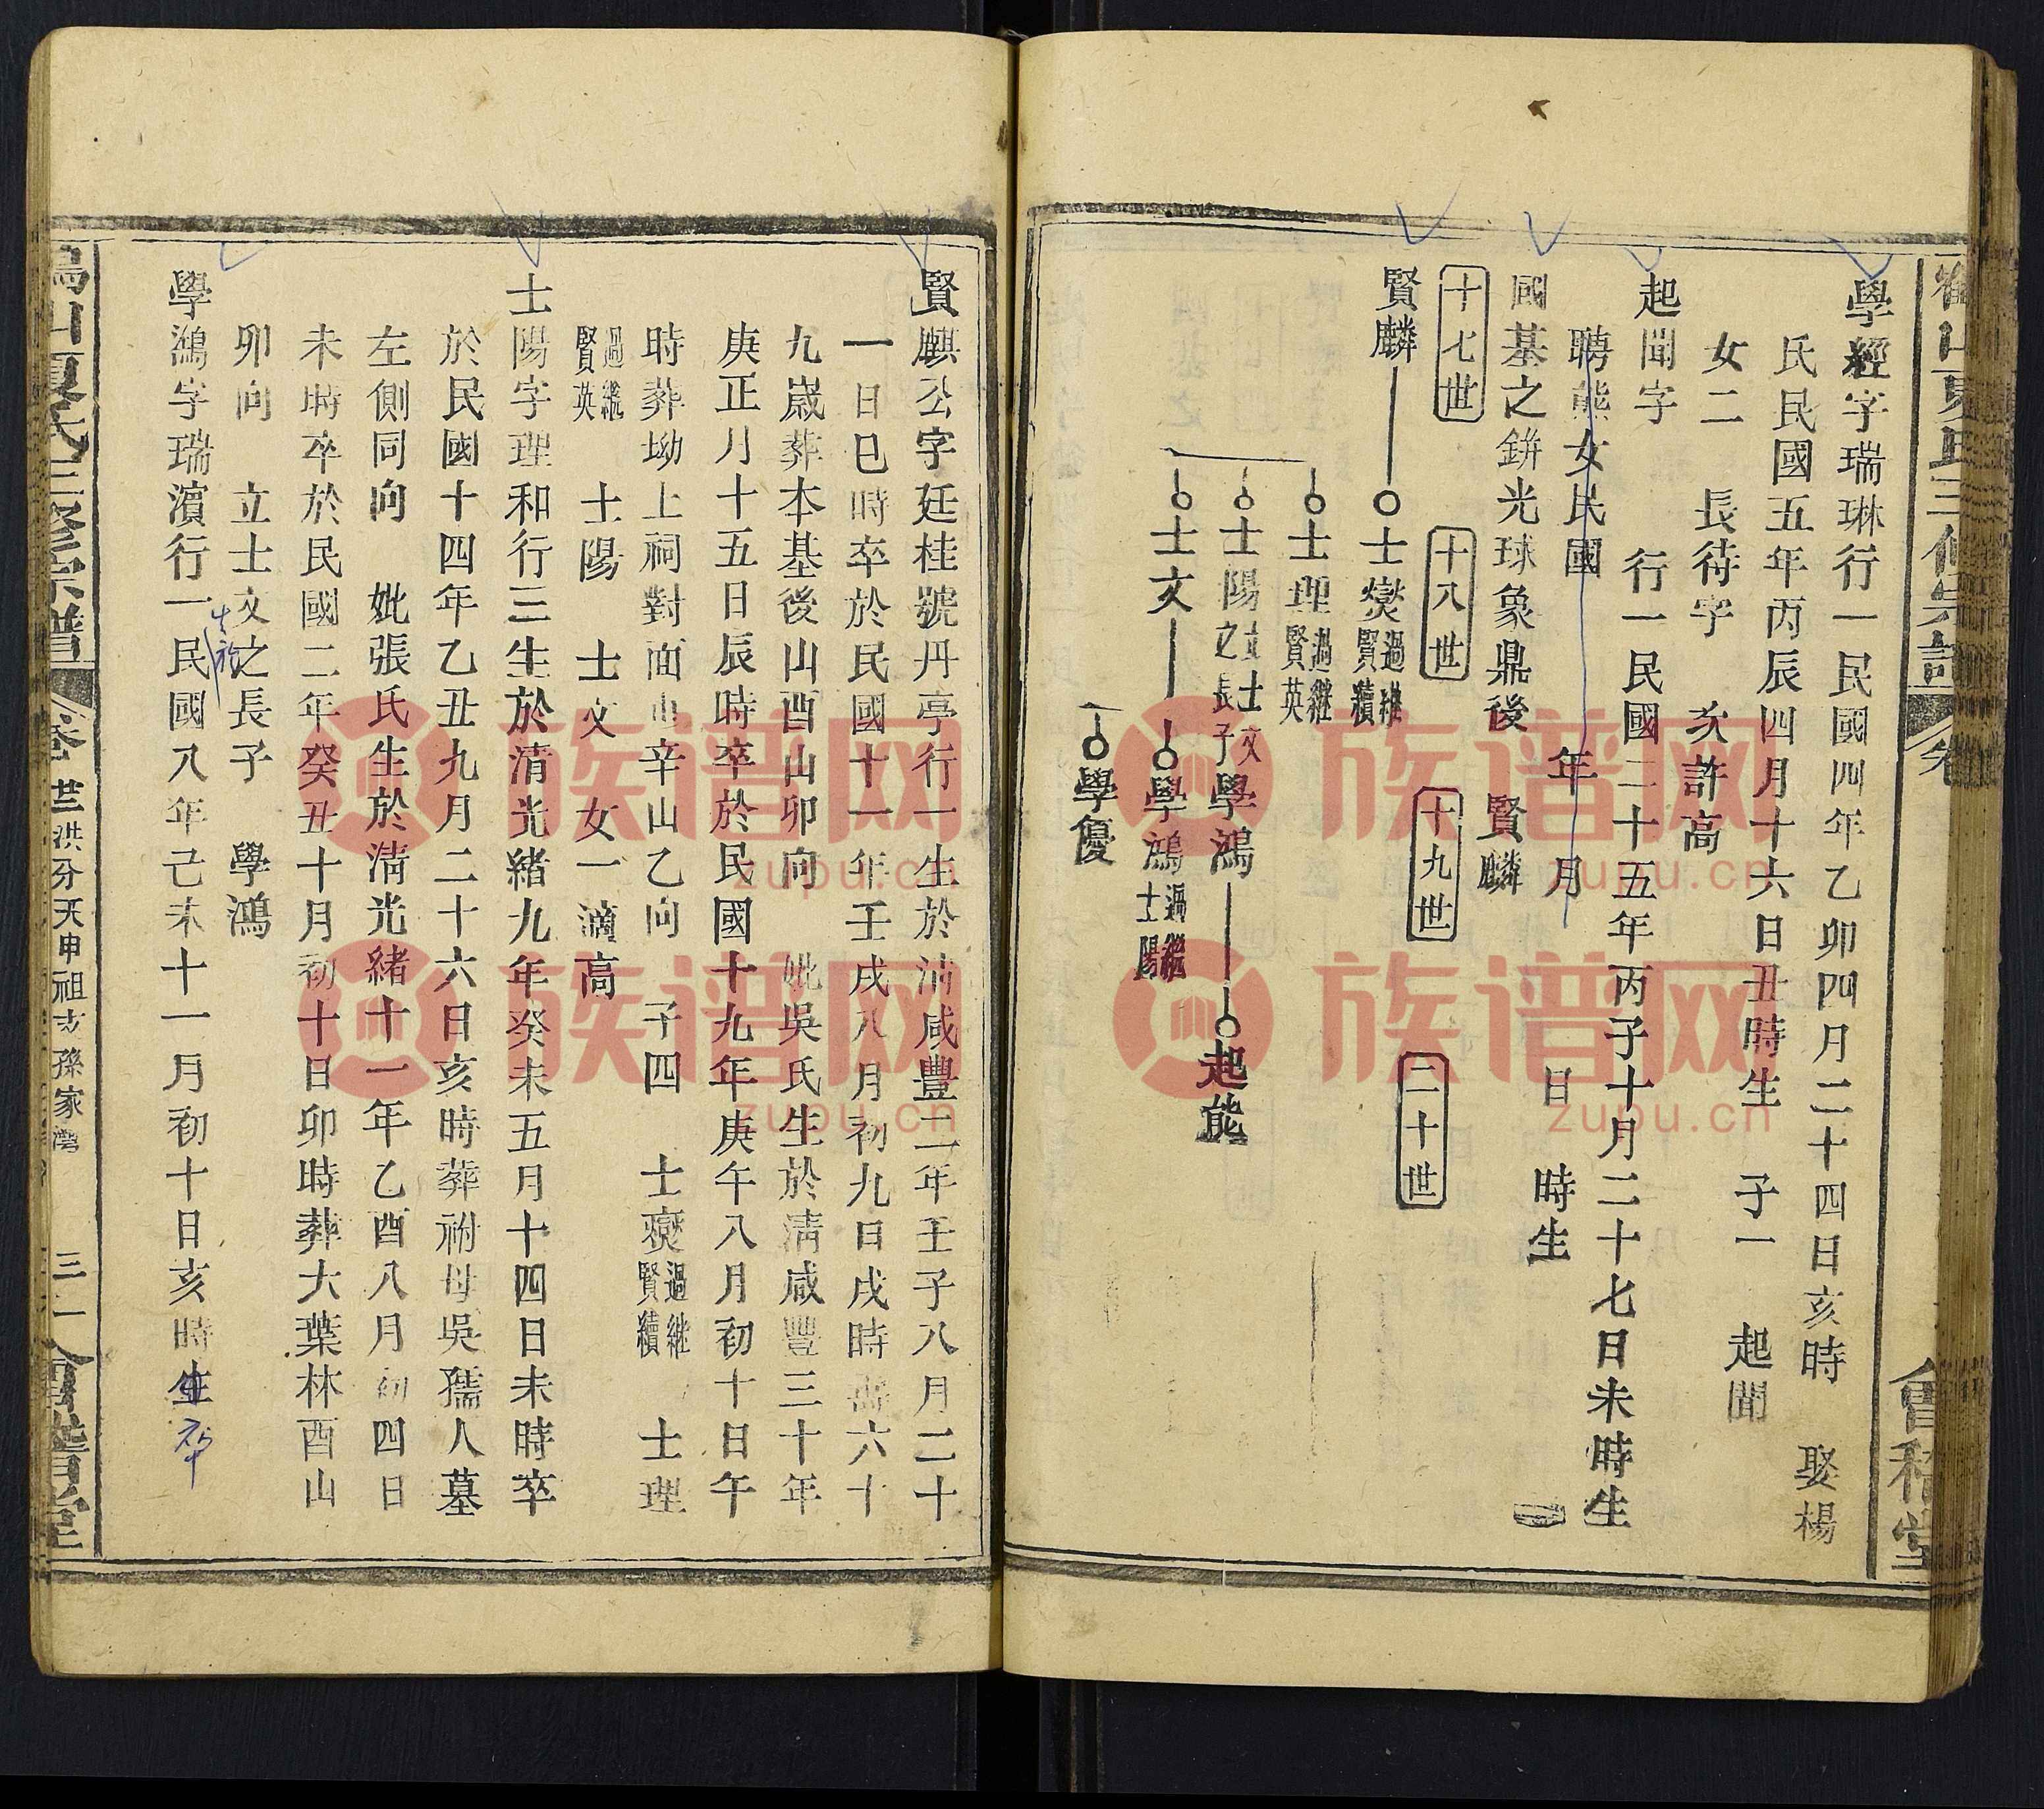 學經字瑞琳行一民國四年乙卯四月二十四日亥時 娶楊
氏民國五年丙辰四月十六日丑時生 子一 起聞
女二 長待字 次許高
起聞字 行一民國二十五年丙子十月二十七日未時生
聘熊女民國 年 月 日 時生
國基之餅光球象鼎後 賢麟
十七世 十八世 十九世 二十世
賢麟 士爕 過繼賢續
士理 過繼賢英
士陽 立士文之長子 學鴻 起能
士文 學鴻 過繼士陽
學優
會稽堂
賢麒公字廷桂號丹亭行一生於清咸豐二年壬子八月二十
一日巳時卒於民國十一年壬戌八月初九日戌時壽六十
九嵗葬本基後山酉山卯向 妣吳氏生於清咸豐三十年
庚正月十五日辰時卒於民國十九年庚午八月初十日午
時葬坳上祠對面山辛山乙向 子四 士爕 過繼賢續 士理
過繼賢英 士陽 士文 女一適高
士陽字理和行三生於清光緒九年癸未五月十四日未時卒
於民國十四年乙丑九月二十六日亥時葬祔母吳孺人墓
左側同向 妣張氏生於清光緒十一年乙酉八月初四日
未時卒於民國二年癸丑十月初十日卯時葬大葉林酉山
卯向 立士文之長子 學鴻
學鴻字瑞濱行一民國八年己未十一月初十日亥時生
山夏氏三修宗譜 卷 世洪分天申祖支孫家灣 三一 會稽堂
族谱网
zupu.cn
族谱网
zupu.cn
族谱网
zupu.cn
族谱网
zupu.cn